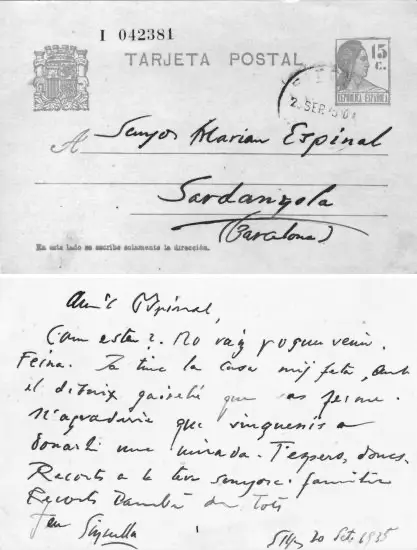 I 042381
TARJETA POSTAL
15 C.
REPUBLICA ESPAÑOLA
SEP
A Senyor Marian Espinal
Sardanyola
(Barcelona)
En este lado se escribe solamente la dirección.
Amic Espinal,
Com estàs?. No vaig poguer venir.
Feina. Ja tinc la casa mig feta, amb
el dibuix que
M'agradaria que vinguessis a
donarli una mirada. T'espero, doncs.
Records a la teva senyora i familia
Records també de tots
20 Set. 1935